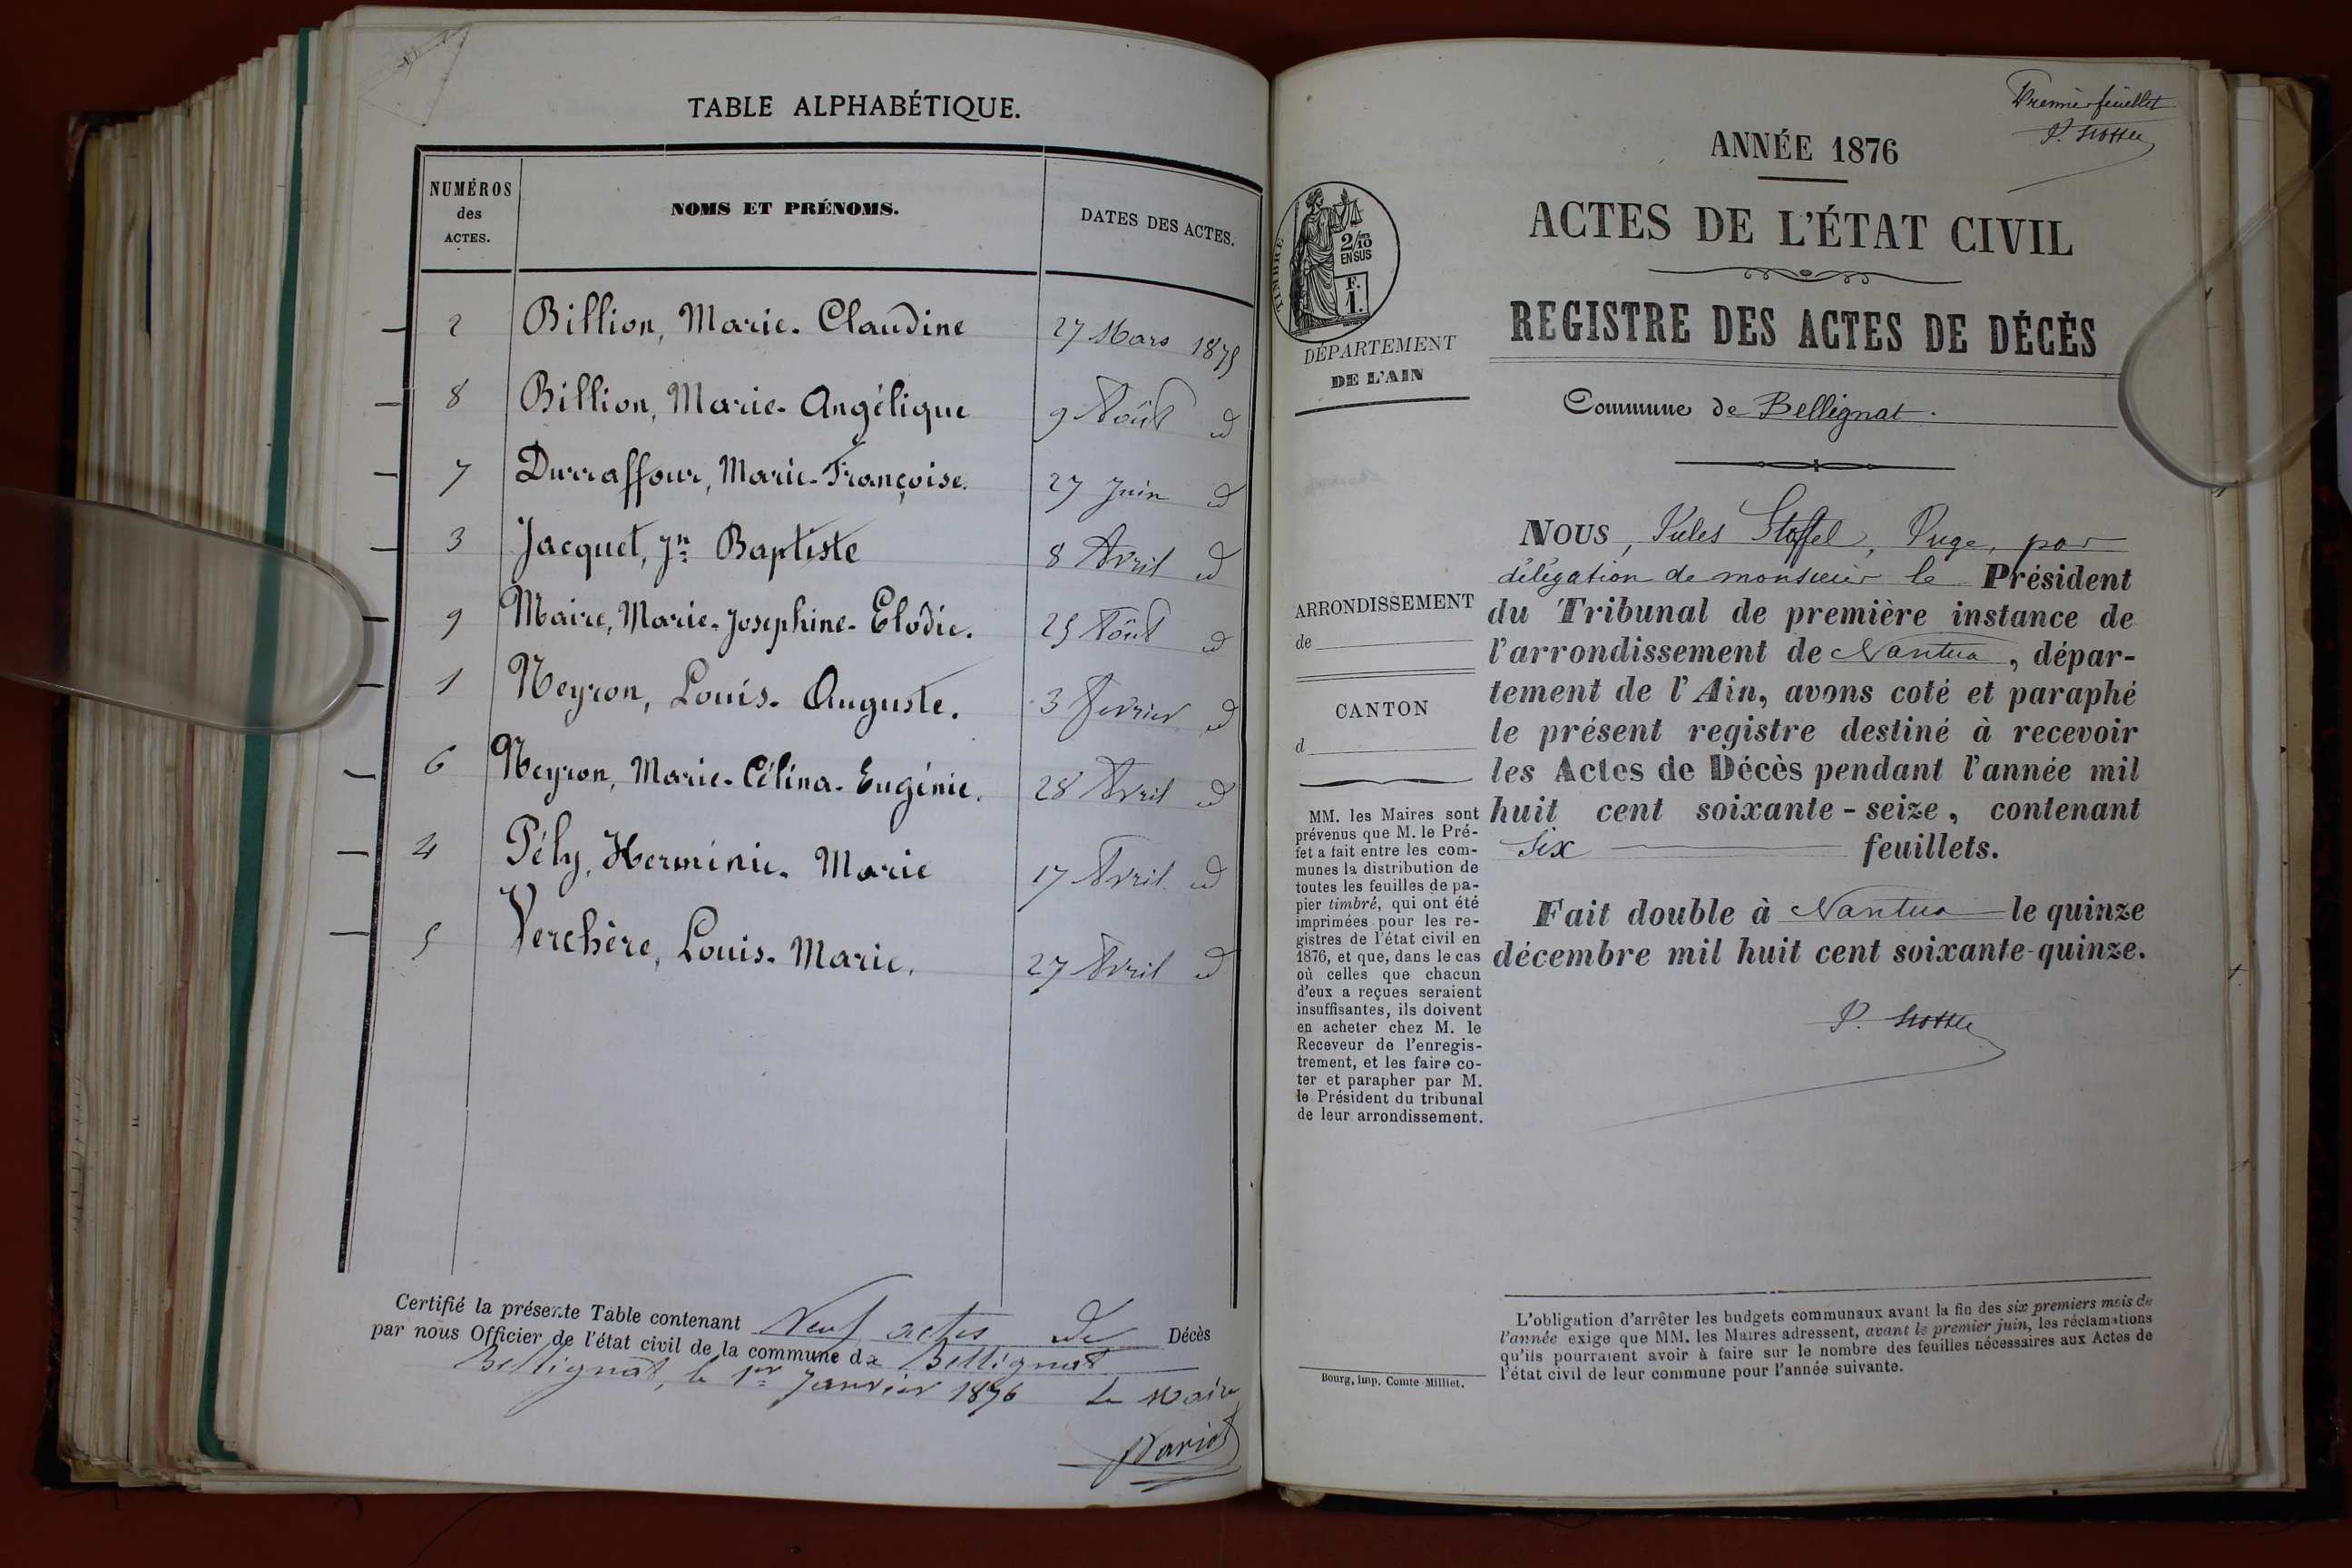 TABLE ALPHABÉTIQUE.
NUMÉROS
des
ACTES.
NOMS ET PRÉNOMS.
DATES DES ACTES.
2 Billion, Marie-Claudine 27 Mars 1875
8 Billion, Marie-Angélique 9 Août d
7 Durraffour, Marie-Françoise. 27 Juin d
3 Jacquet, Jn Baptiste 8 Avril d
9 Maire, Marie-Josephine-Elodie. 25 Août d
1 Neyron, Louis-Auguste. 3 Fevrier d
6 Neyron, Marie-Célina-Eugénie. 28 Avril d
4 Pély, Herminie-Marie 17 Avril d
5 Verchère, Louis-Marie. 27 Avril d
Certifié la présente Table contenant Neuf actes de Décès
par nous Officier de l'état civil de la commune de Bellignat
Bellignat, le 1er Janvier 1876 Le Maire
Premier feuillet
ANNÉE 1876
ACTES DE L'ÉTAT CIVIL
REGISTRE DES ACTES DE DÉCÈS
TIMBRE
2/10
EN SUS
F.
1.
DÉPARTEMENT
DE L'AIN
Commune de Bellignat.
ARRONDISSEMENT
de
CANTON
d
MM. les Maires sont
prévenus que M. le Pré-
fet a fait entre les com-
munes la distribution de
toutes les feuilles de pa-
pier timbré, qui ont été
imprimées pour les re-
gistres de l'état civil en
1876, et que, dans le cas
où celles que chacun
d'eux a reçues seraient
insuffisantes, ils doivent
en acheter chez M. le
Receveur de l'enregis-
trement, et les faire co-
ter et parapher par M.
le Président du tribunal
de leur arrondissement.
NOUS, Jules Stoffel, Juge, par
délégation de monsieur le Président
du Tribunal de première instance de
l'arrondissement de Nantua, dépar-
tement de l'Ain, avons coté et paraphé
le présent registre destiné à recevoir
les Actes de Décès pendant l'année mil
huit cent soixante-seize, contenant
Six feuillets.
Fait double à Nantua le quinze
décembre mil huit cent soixante-quinze.
L'obligation d'arrêter les budgets communaux avant la fin des six premiers mois de
l'année exige que MM. les Maires adressent, avant le premier juin, les réclamations
qu'ils pourraient avoir à faire sur le nombre des feuilles nécessaires aux Actes de
l'état civil de leur commune pour l'année suivante.
Bourg, imp. Comte-Milliet.